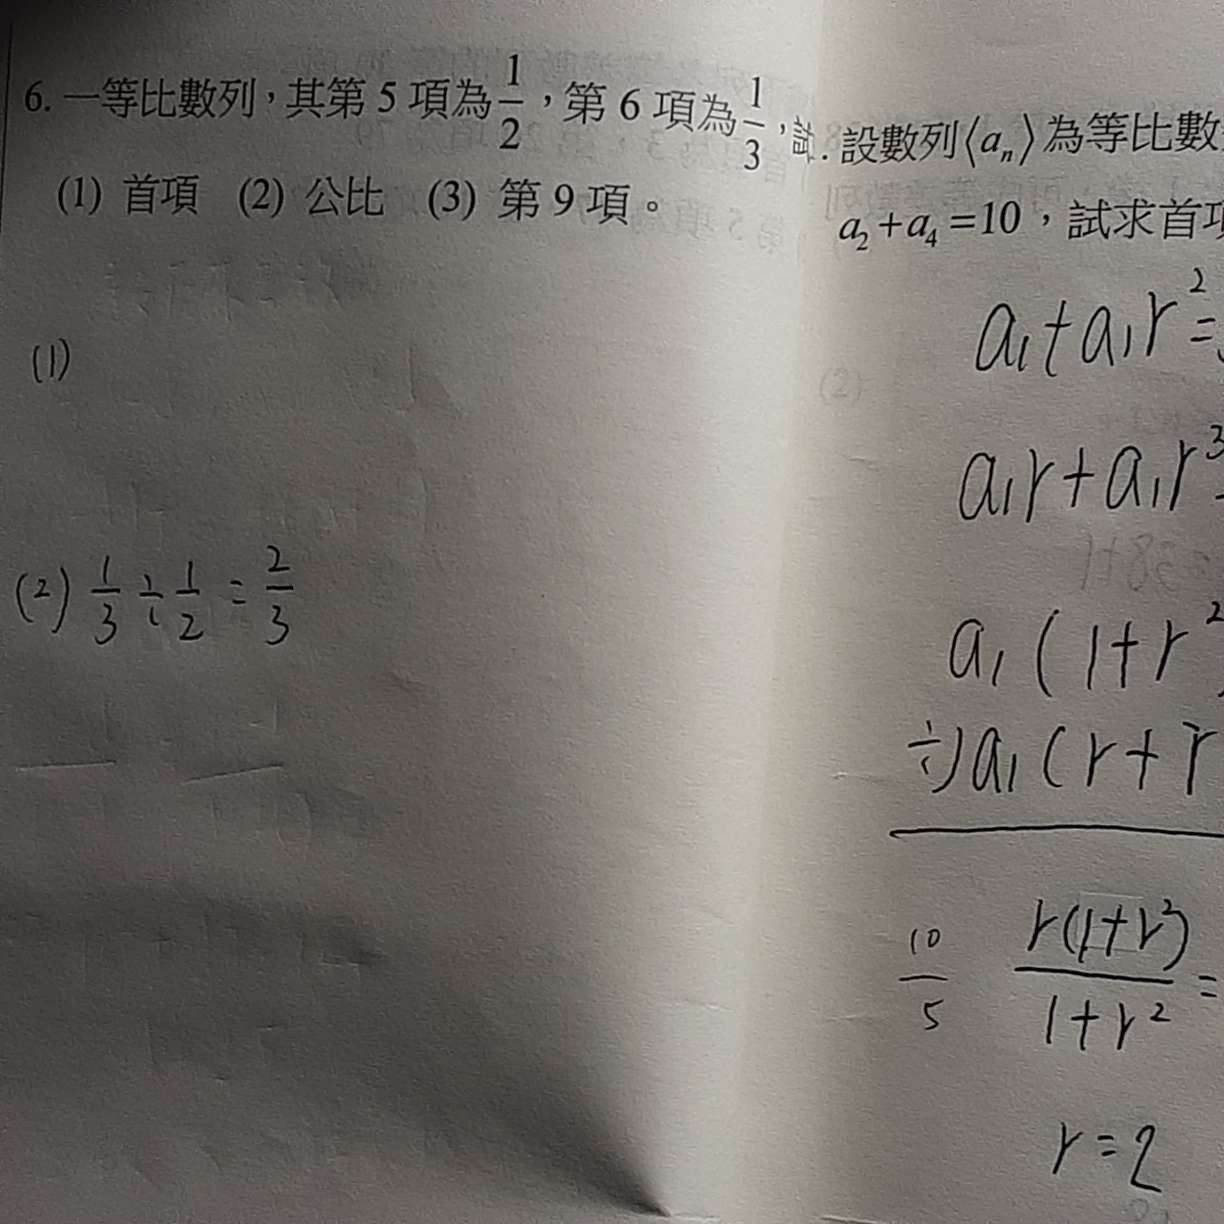 6. 一等比數列，其第 5 項為 1/2，第 6 項為 1/3，
(1) 首項 (2) 公比 (3) 第 9 項。
(1)
(2) 1/3 ÷ 1/2 = 2/3
設數列⟨aₙ⟩為等比數
a₂+a₄=10，試求首項
a₁+a₁r²=
a₁r+a₁r³
a₁(1+r²)
÷)a₁(r+r
10/5 r(1+r²)/1+r² =
r=2